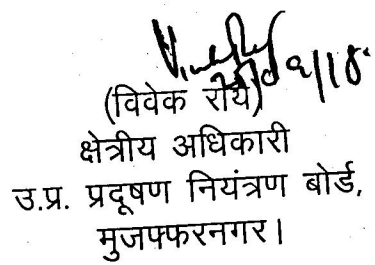 (विवेक रॉय)
क्षेत्रीय अधिकारी
उ.प्र. प्रदूषण नियंत्रण बोर्ड,
मुजफ्फरनगर।